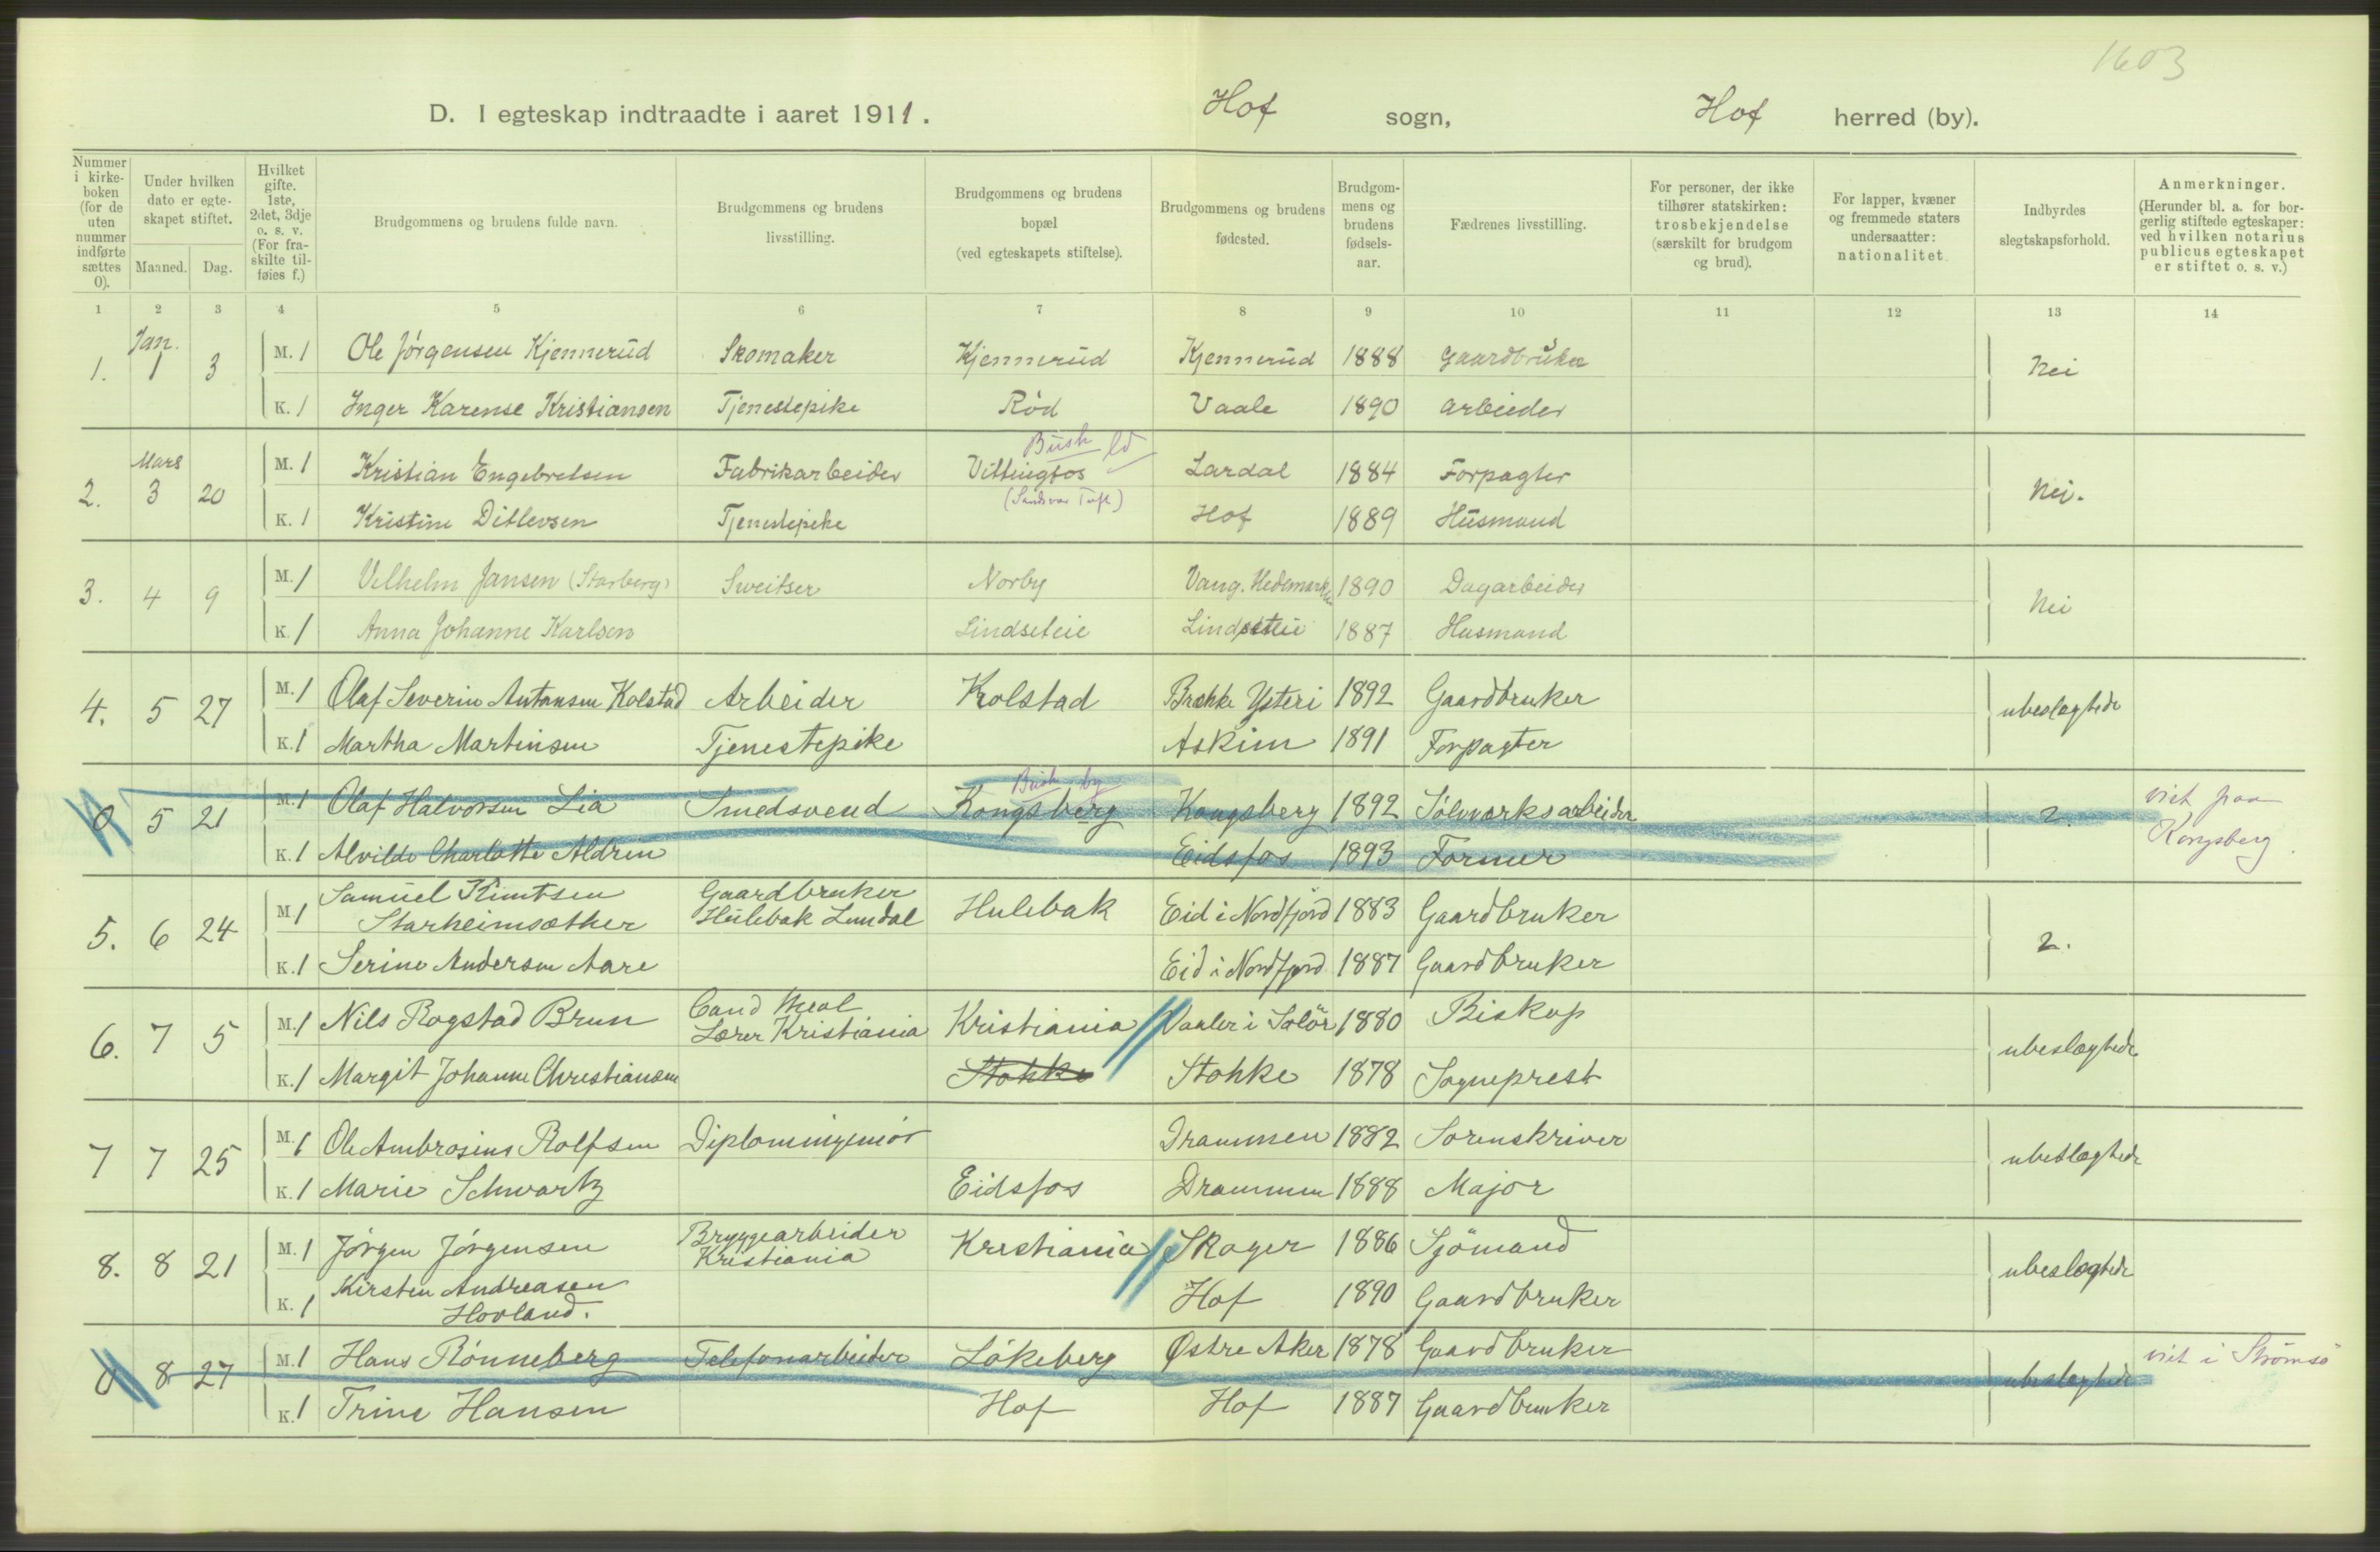 1603
D. I egteskap indtraadte i aaret 1911. Hof sogn, Hof herred (by).
Nummer i kirke-boken (for de uten nummer indførte sættes 0).
Under hvilken dato er egte-skapet stiftet.
Maaned. Dag.
Hvilket gifte. 1ste, 2det, 3dje o. s. v. (For fra-skilte til-føies f.)
Brudgommens og brudens fulde navn.
Brudgommens og brudens livsstilling.
Brudgommens og brudens bopæl (ved egteskapets stiftelse).
Brudgommens og brudens fødested.
Brudgom-mens og brudens fødsels-aar.
Fædrenes livsstilling.
For personer, der ikke tilhører statskirken: trosbekjendelse (særskilt for brudgom og brud).
For lapper, kvæner og fremmede staters undersaatter: nationalitet.
Indbyrdes slegtskapsforhold.
Anmerkninger. (Herunder bl. a. for bor-gerlig stiftede egteskaper: ved hvilken notarius publicus egteskapet er stiftet o. s. v.)
1 2 3 4 5 6 7 8 9 10 11 12 13 14
Jan.
1. 1 3 M. 1 Ole Jørgensen Kjennerud Skomaker Kjennerud Kjennerud 1888 Gaardbruker Nei
K. 1 Inger Karense Kristiansen Tjenestepike Rød Vaale 1890 Arbeider
Mars Busk ld
2. 3 20 M. 1 Kristian Engebretsen Fabrikarbeider Vittingfos Lardal 1884 Forpagter Nei.
K. 1 Kristine Ditlevsen Tjenestepike (Sandsvær Tuft) Hof 1889 Husmand
3. 4 9 M. 1 Vilhelm Jansen (Starberg) Sveitser Norby Vang. Hedemarken 1890 Dagarbeider Nei
K. 1 Anna Johanne Karlsen Lindseteie Lindseteie 1887 Husmand
4. 5 27 M. 1 Olaf Severin Antonsen Kolstad Arbeider Kolstad Brække Ysteri 1892 Gaardbruker ubeslægtede
K. 1 Martha Martinsen Tjenestepike Askim 1891 Forpagter
Busk by
0 5 21 M. 1 Olaf Halvorsen Lia Smedsvend Kongsberg Kongsberg 1892 Sølvverksarbeider 2. viet paa
K. 1 Alvilde Charlotte Aldrin Eidsfos 1893 Former Kongsberg.
5. 6 24 M. 1 Samuel Knutsen Starheimsæther Gaardbruker Hulebak Lundal Hulebak Eid i Nordfjord 1883 Gaardbruker 2.
K. 1 Serine Andersen Aare Eid i Nordfjord 1887 Gaardbruker
6. 7 5 M. 1 Nils Rogstad Brun Cand Lærer Kristiania Kristiania Vaaler i Solör 1880 Biskop ubeslægtede
K. 1 Margit Johanne Christiansen Stokke Stokke 1878 Sogneprest
7 7 25 M. 1 Ole Ambrosius Rolfsen Diplomingeniör Drammen 1882 Sorenskriver ubeslægtede
K. 1 Marie Schwartz Eidsfos Drammen 1888 Major
8. 8 21 M. 1 Jørgen Jørgensen Bryggearbeider Kristiania Kristiania Skoger 1886 Sjömand ubeslægtede
K. 1 Kirsten Andreasen Hovland. Hof 1890 Gaardbruker
0 8 27 M. 1 Hans Rønneberg Telefonarbeider Løkeberg Østre Aker 1878 Gaardbruker ubeslægtede viet i Strømsö
K. 1 Trine Hansen Hof Hof 1887 Gaardbruker